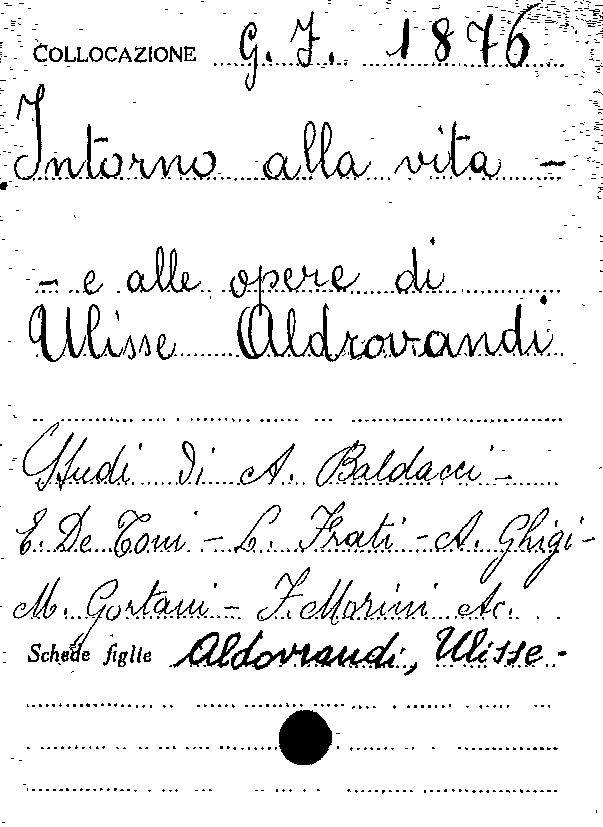 COLLOCAZIONE G. J. 1876
Intorno alla vita -
- e alle opere di
Ulisse Aldrovandi
Studi di A. Baldacci -
E. De Toni - L. Frati - A. Ghigi -
M. Gortani - F. Morini ec.
Schede figlie Aldovrandi, Ulisse -